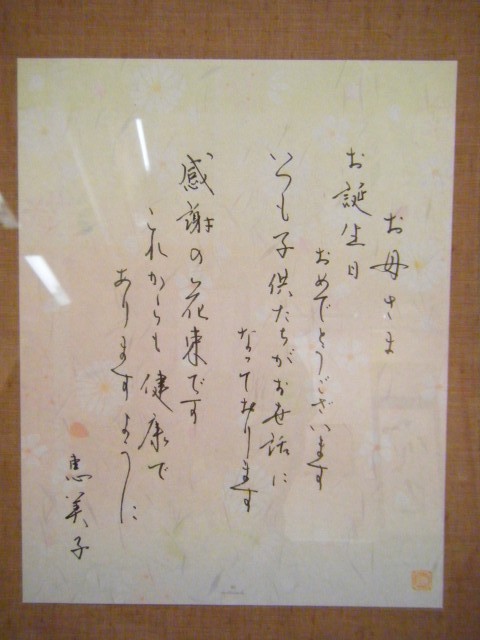 お母さま
お誕生日
おめでとうございます
いつも子供たちがお世話に
なっております
感謝の花束です
これからも健康で
ありますように
恵美子